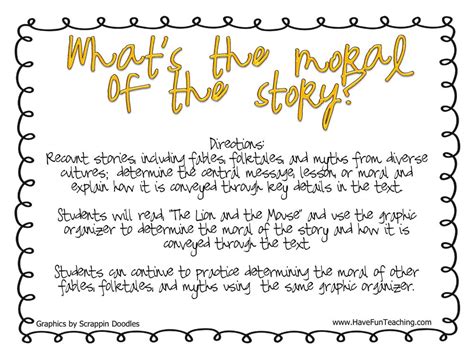 What's the moral
of the story?
Directions:
Recount stories, including fables, folktales, and myths from diverse
cultures; determine the central message, lesson or moral and
explain how it is conveyed through key details in the text.
Students will read "The Lion and the Mouse" and use the graphic
organizer to determine the moral of the story and how it is
conveyed through the text.
Students can continue to practice determining the moral of other
fables, folktales, and myths using the same graphic organizer.
Graphics by Scrappin Doodles
www.HaveFunTeaching.com